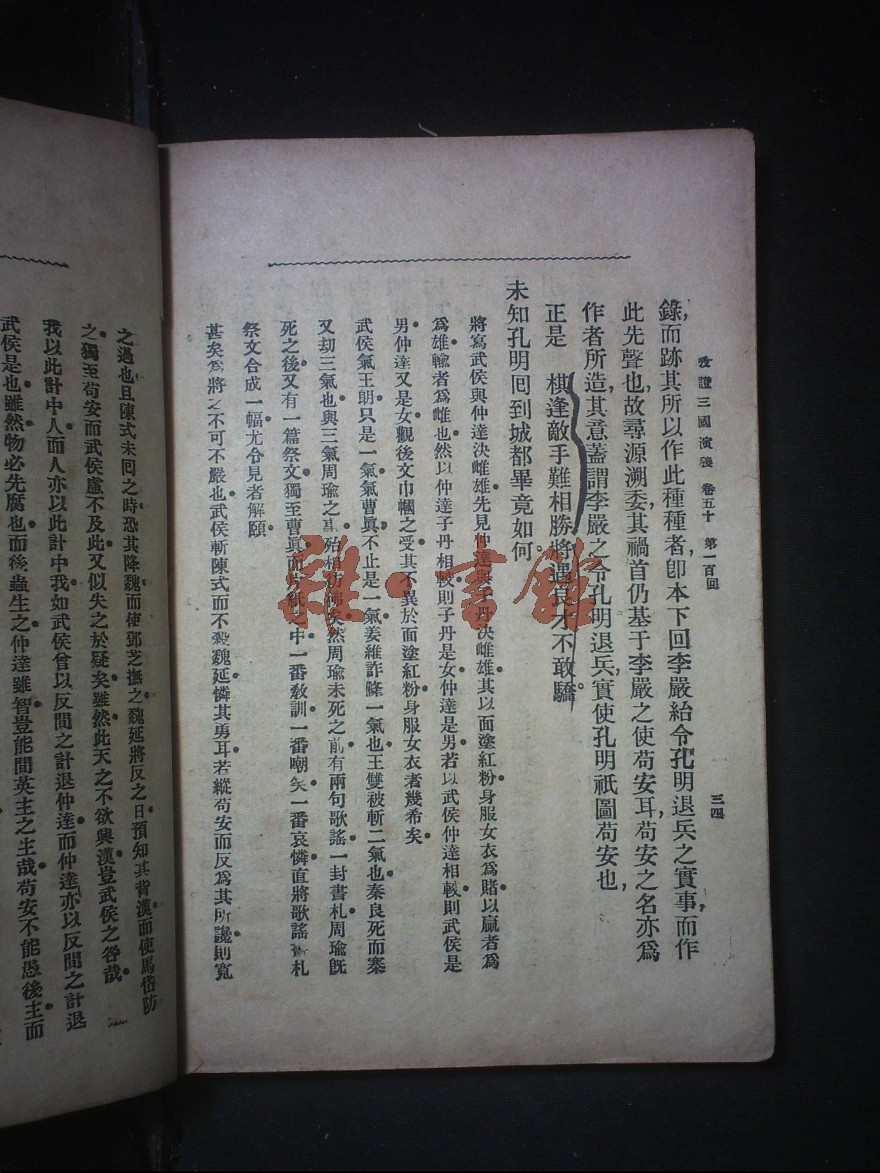 改證三國演義 卷五十 第一百回 三四
錄,而跡其所以作此種種者,卽本下回李嚴紿令孔明退兵之實事,而作
此先聲也,故尋源溯委,其禍首仍基于李嚴之使苟安耳,苟安之名亦爲
作者所造,其意蓋謂李嚴之令孔明退兵,實使孔明祇圖苟安也,
正是 棋逢敵手難相勝,將遇良才不敢驕。
未知孔明囘到城都畢竟如何。
將寫武侯與仲達決雌雄先見仲達與子丹決雌雄其以面塗紅粉身服女衣爲賭以贏者爲
爲雄輸者爲雌也然以仲達子丹相較則子丹是女仲達是男若以武侯仲達相較則武侯是
男仲達又是女觀後文巾幗之受其不異於面塗紅粉身服女衣者幾希矣
武侯氣王朗只是一氣氣曹眞不止是一氣姜維詐降一氣也王雙被斬二氣也秦良死而寨
又劫三氣也與三氣周瑜之事殆相彷彿矣然周瑜未死之前有兩句歌謠一封書札周瑜旣
死之後又有一篇祭文獨至曹眞而片紙之中一番敎訓一番嘲笑一番哀憐直將歌謠書札
祭文合成一幅尤令見者解頤
甚矣爲將之不可不嚴也武侯斬陳式而不殺魏延憐其勇耳若縱苟安而反爲其所讒則寬
之過也且陳式未囘之時恐其降魏而使鄧芝撫之魏延將反之日預知其背漢而使馬岱防
之獨至苟安而武侯慮不及此又似失之於疑矣雖然此天之不欲興漢豈武侯之咎哉
我以此計中人而人亦以此計中我如武侯曾以反間之計退仲達而仲達亦以反間之計退
武侯是也雖然物必先腐也而後蟲生之仲達雖智豈能間英主之主哉苟安不能愚後主而
雜·書館